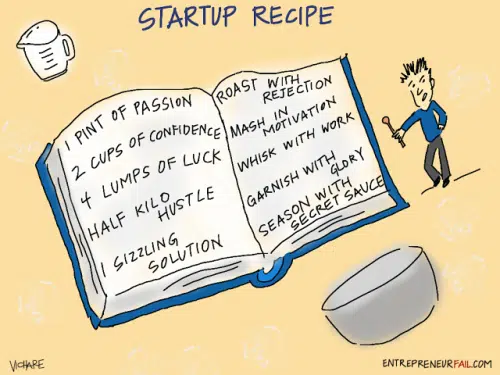 STARTUP RECIPE
1 PINT OF PASSION
2 CUPS OF CONFIDENCE
4 LUMPS OF LUCK
HALF KILO
HUSTLE
1 SIZZLING
SOLUTION
ROAST WITH
REJECTION
MASH IN
MOTIVATION
WHISK WITH WORK
GARNISH WITH
GLORY
SEASON WITH
SECRET SAUCE
VICHARE
ENTREPRENEURFAIL.COM